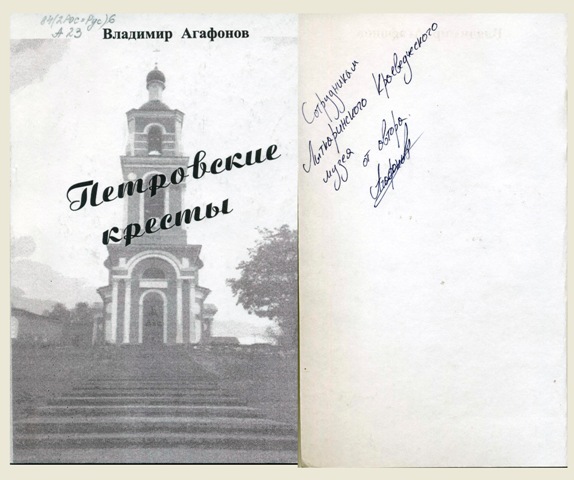 84(2Рос=Рус)6
А 23
Владимир Агафонов
Петровские
кресты
Сотрудникам
Лыткаринского Краеведческого
музея от автора.